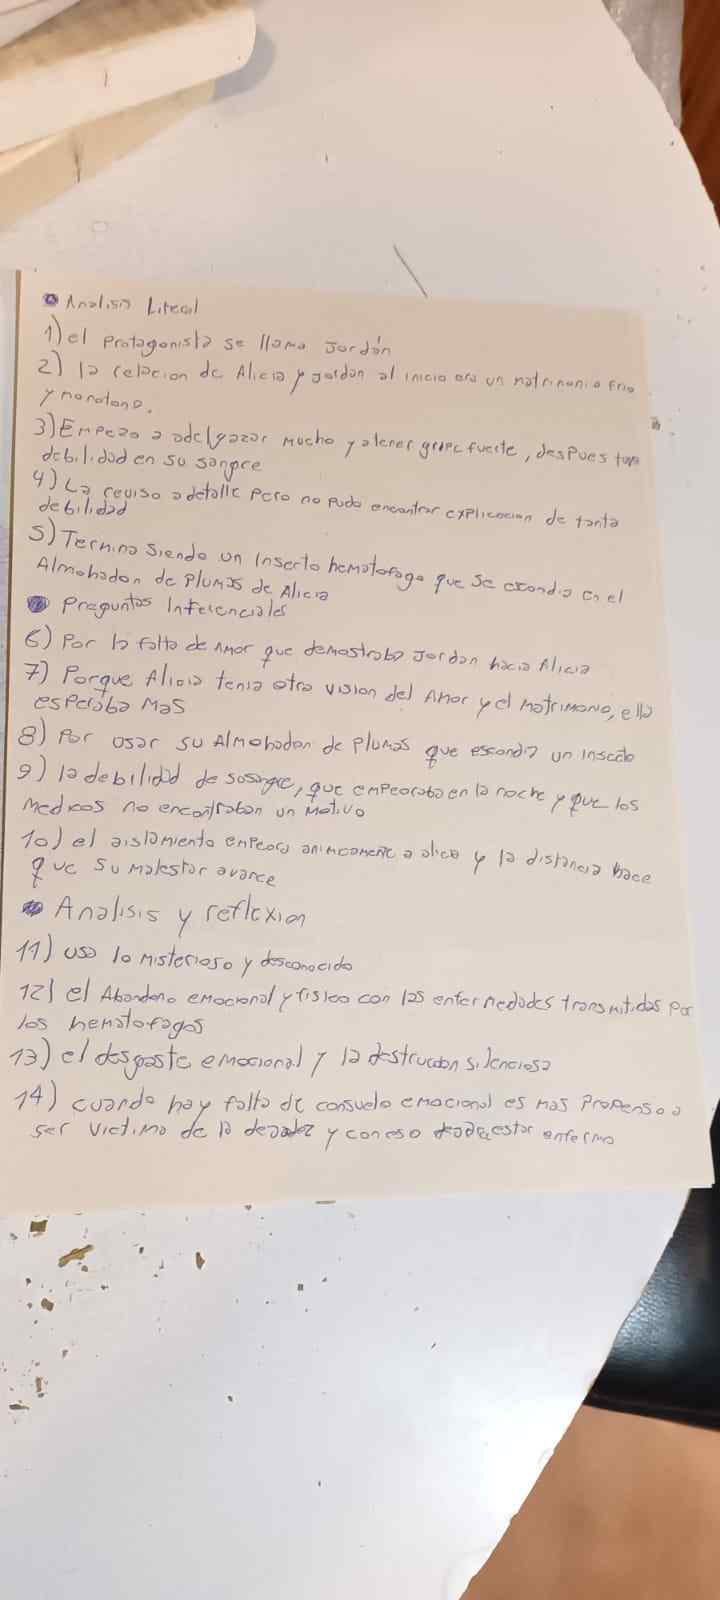 Analisis Literal
1) el Protagonista se llama Jordán
2) la relacion de Alicia y Jordan al inicio era un matrimonio frio
y monotono.
3) Empezo a adelgazar mucho y atener gripe fuerte, despues tuvo
debilidad en su sangre
4) La reviso a detalle pero no pudo encontrar explicacion de tanta
debilidad
5) Termina siendo un Insecto hematofago que se escondia en el
Almohadon de Plumas de Alicia
Preguntas Inferenciales
6) Por la falta de Amor que demostraba Jordan hacia Alicia
7) Porque Alicia tenia otra vision del Amor y el matrimonio, ella
esperaba mas
8) Por usar su Almohadon de Plumas que escondia un insecto
9) la debilidad de sosangre, que empeoraba en la noche y que los
medicos no encontraban un motivo
10) el aislamiento empeora animicamente a alicia y la distancia hace
que su malestar avance
Analisis y reflexion
11) uso lo misterioso y desconocido
12) el Abandono emocional y fisico con las enfermedades transmitidas por
los hematofagos
13) el desgaste emocional y la destruccion silenciosa
14) cuando hay falta de consuelo emocional es mas Propenso a
ser victima de la y con eso estar enfermo